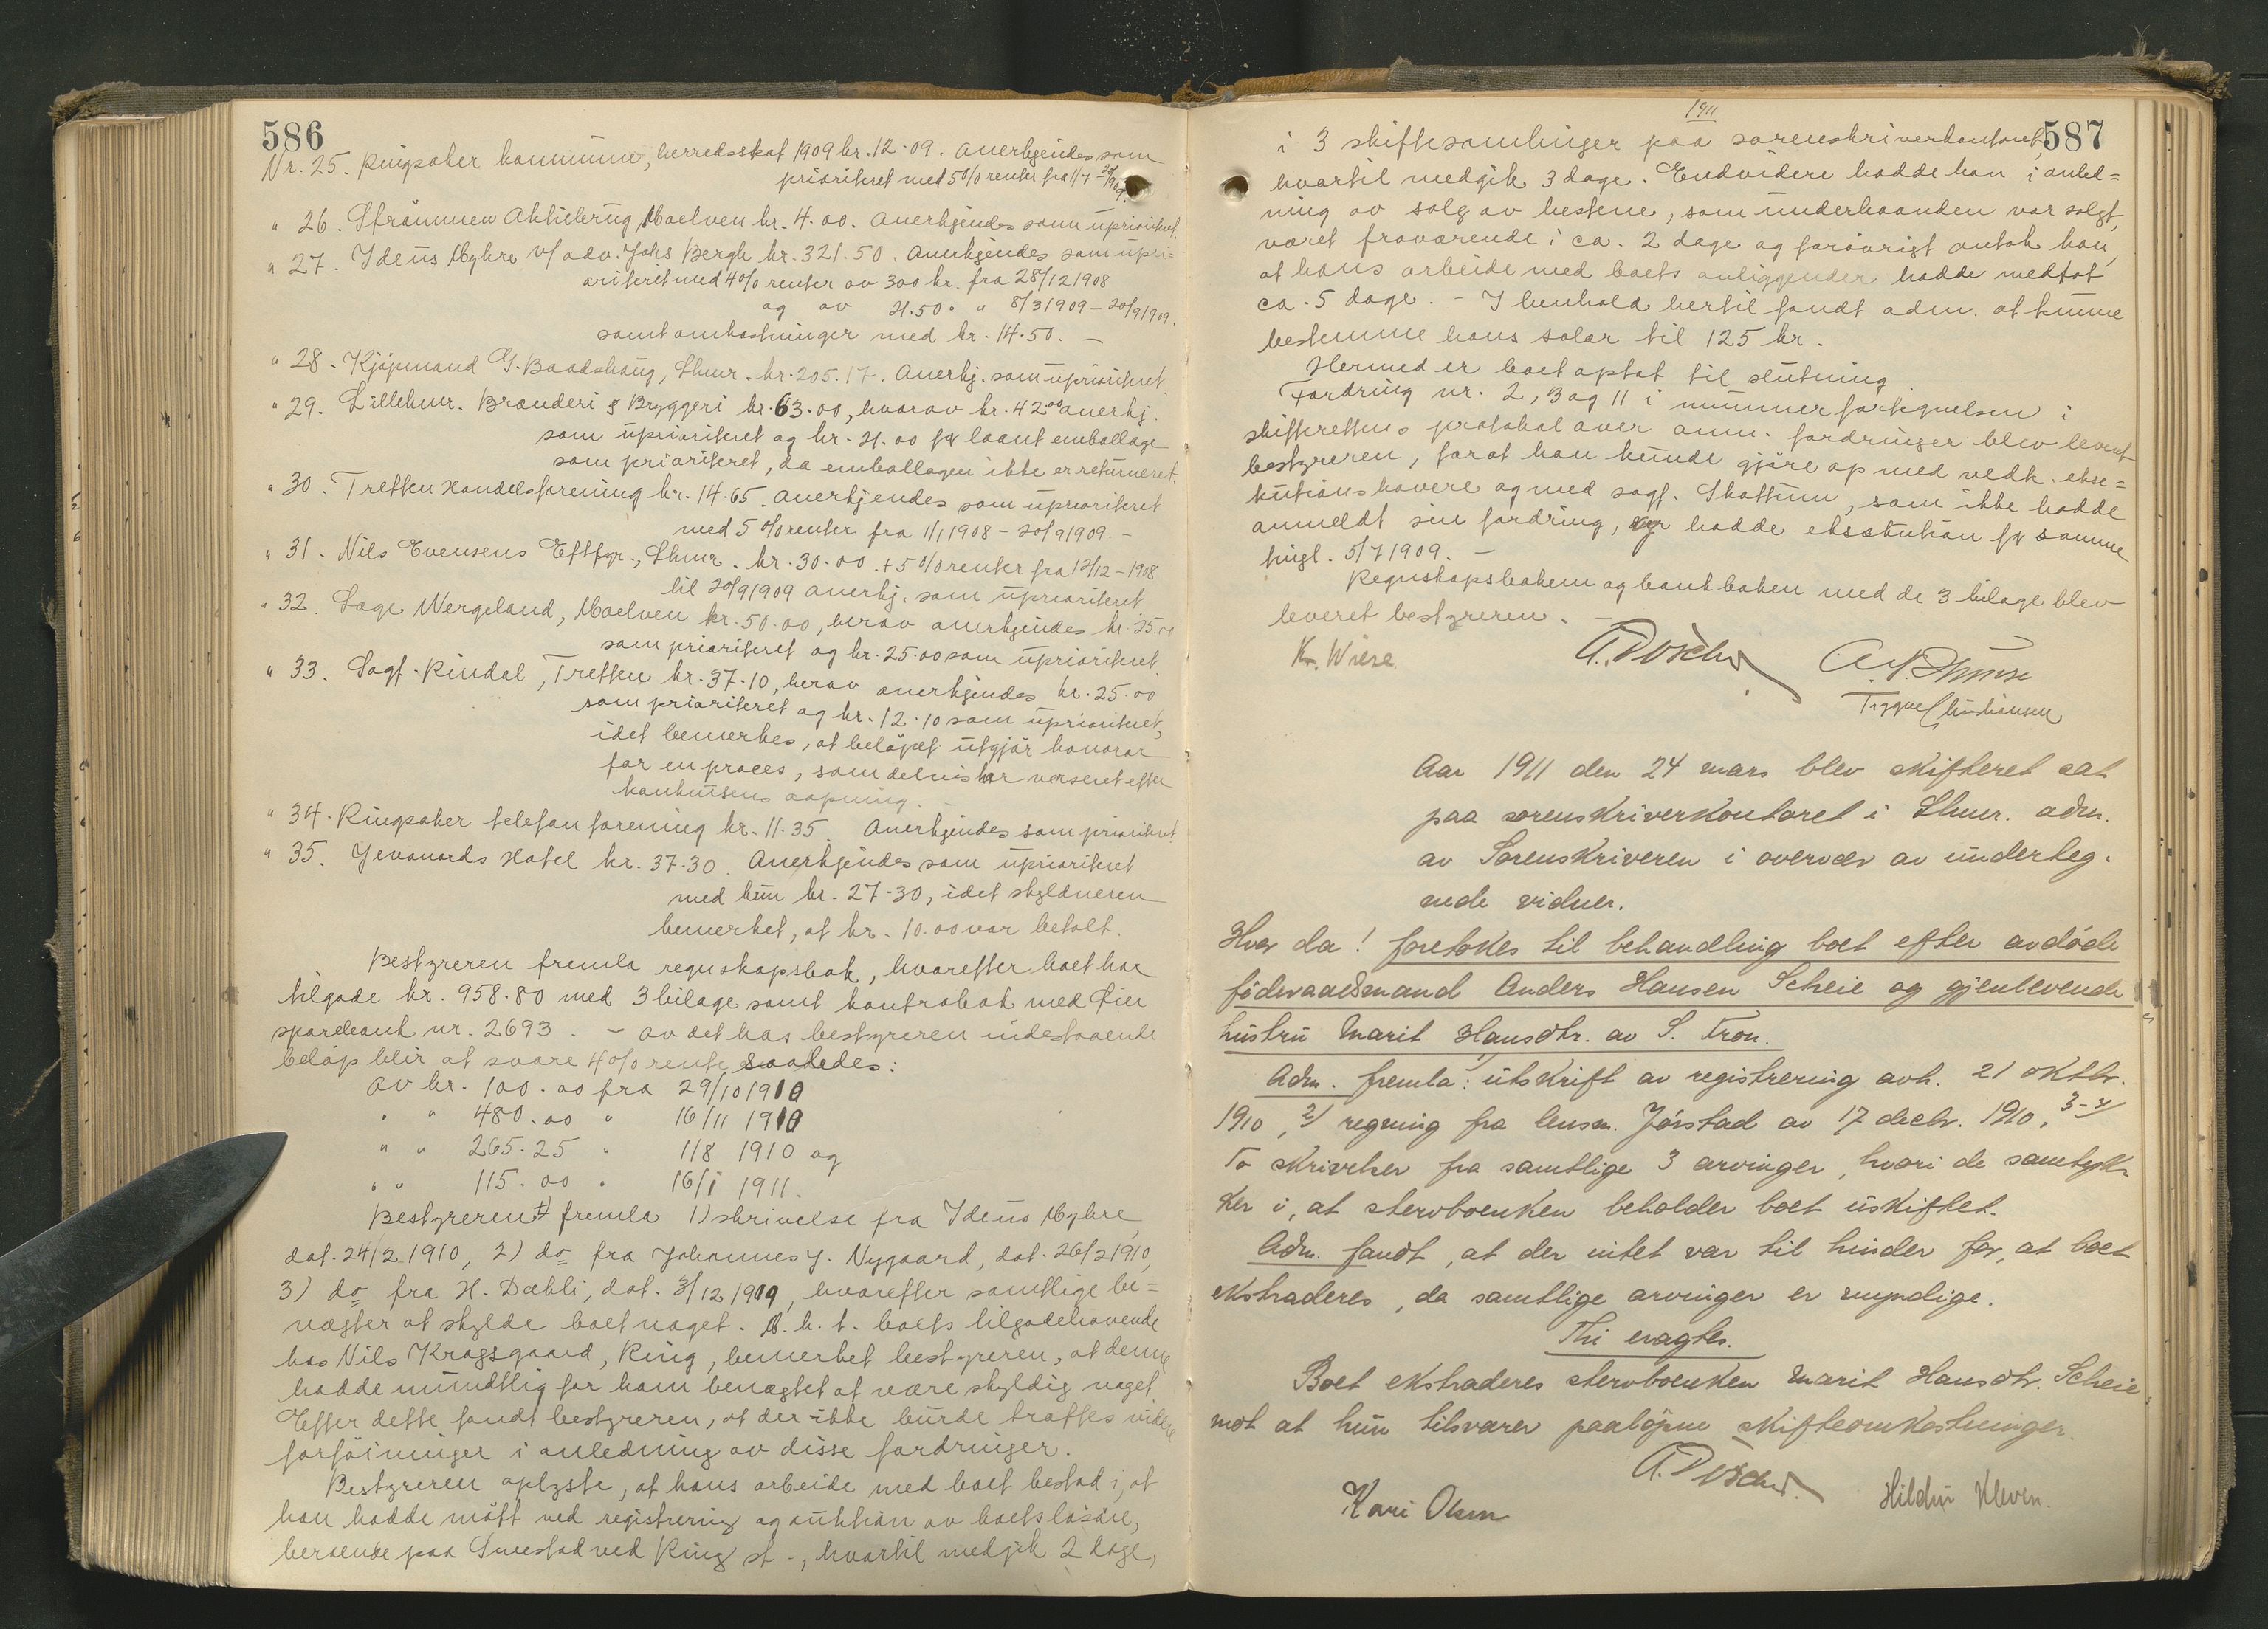 586
Nr. 25. Ringsaker kommune, herredsskat 1909 kr. 12.09. Anerkjendes som
prioriteret med 5% renter fra 1/7 - 20/9 1909.
" 26. Strömmen Aktiebrug, Moelven kr. 4.00. Anerkjendes som uprioritert.
" 27. Ideus Myhre v/ adv. Johs Bergh kr. 321.50. Anerkjendes som upri=
oriteret med 4% renter av 300 kr. fra 28/12 1908
og av 21.50 " " 8/3 1909 – 20/9 1909.
samt omkostninger med kr. 14.50. –
" 28. Kjöpmand G. Baadshaug, Lhmr. kr. 205.17. Anerkj. som uprioriteret
" 29. Lillehmr. Brænderi & Bryggeri kr. 63.00, hvorav kr. 42.00 anerkj.
som uprioriteret og kr. 21.00 for laant emballage
som prioriteret, da emballagen ikke er returneret.
" 30. Tretten Handelsforening kr. 14.65. Anerkjendes som uprioriteret
med 5% renter fra 1/1 1908 – 20/9 1909. –
" 31. Nils Evensens Eftfgr., Lhmr. kr. 30.00 + 5% renter fra 12/12 – 1908
til 20/9 1909 anerkj. som uprioriteret
" 32. Sagf. Wergeland, Moelven kr. 50.00, herav anerkjendes kr. 25.00
som prioriteret og kr. 25.00 som uprioriteret
" 33. Sagf. Rindal, Tretten kr. 37.10, herav anerkjendes kr. 25.00
som prioriteret og kr. 12.10 som uprioriteret,
idet bemerkes, at belöpet utgjör honorar
for en proces, som delvis har verseret efter
konkursens aapning.
" 34. Ringsaker telefonforening kr. 11.35. Anerkjendes som prioriteret.
" 35. Jevanords Hotel kr. 37.30. Anerkjendes som uprioriteret
med kun kr. 27.30, idet skyldneren
bemerket, at kr. 10.00 var betalt.
Bestyreren fremla regnskapsbok, hvorefter boet har
tilgode kr. 958.80 med 3 bilage samt kontrabok med Öier
sparebank nr. 2693. – Av det hos bestyreren indestaaende
belöp blir at svare 4% rente saaledes:
Av kr. 100.00 fra 29/10 1910
" " 480.00 " 16/11 1910
" " 265.25 " 1/8 1910 og
" " 115.00 " 16/1 1911.
Bestyreren fremla 1) skrivelse fra Ideus Myhre,
dat. 24/2 1910, 2) do fra Johannes J. Nygaard, dat. 26/2 1910,
3) do fra H. Dæhli, dat. 3/12 1909, hvorefter samtlige be=
nægter at skylde boet noget. M. h. t. boets tilgodehavende
hos Nils Kragsgaard, Ring, bemerket bestyreren, at denne
hadde mundtlig for ham benægtet at være skyldig noget
Efter dette fandt bestyreren, at der ikke burde træffes videre
forföininger i anledning av disse fordringer.
Bestyreren oplyste, at hans arbeide med boet bestod i, at
han hadde mött ved registrering og auktion av boets lösöre,
beroende paa Smestad ved Ring st., hvortil medgik 2 dage,
1911
587
i 3 skiftesamlinger paa sorenskriverkontoret,
hvortil medgik 3 dage. Endvidere hadde han i anled=
ning av salg av hestene, som underhaanden var solgt,
været fraværende i ca. 2 dage og forövrigt antok han,
at hans arbeide med boets anliggender hadde medtat
ca. 5 dage. – I henhold hertil fandt adm. at kunne
bestemme hans salær til 125 kr.
Hermed er boet optat til slutning.
Fordring nr. 2, 3 og 11 i nummerfortegnelsen i
skifterettens protokol over anm. fordringer blev levert
bestyreren, for at han kunde gjöre op med vedk. ekse=
kutionshavere og med sagf. Skattum, som ikke hadde
anmeldt sin fordring, og hadde eksekution for samme
tingl. 5/7 1909. –
Regnskapsboken og bankboken med de 3 bilage blev
leveret bestyreren. –
K. Wiese.
Aar 1911 den 24 mars blev skifteret sat
paa sorenskriverkontoret i Lhmr. adm.
av Sorenskriveren i overvær av underteg.
nede vidner.
Hvor da! foretokes til behandling boet efter avdöde
föderaadsmand Anders Hansen Scheie og gjenlevende
hustru Marit Hansdtr. av S. Fron.
Adm. fremla: 1/ utskrift av registrering avh. 21 oktbr.
1910, 2/ regning fra lensm. Jörstad av 17 decbr. 1910, 3-4/
To skrivelser fra samtlige 3 arvinger, hvori de samtyk-
ker i, at stervboenken beholder boet uskiftet.
Adm. fandt, at der intet var til hinder for, at boet
ekstraderes, da samtlige arvinger er myndige.
Thi eragtes.
Boet ekstraderes stervboenken Marit Hansdtr. Scheie
mot at hun tilsvarer paalöpne skifteomkostninger.
Kari Olsen
Hildur Kleven.